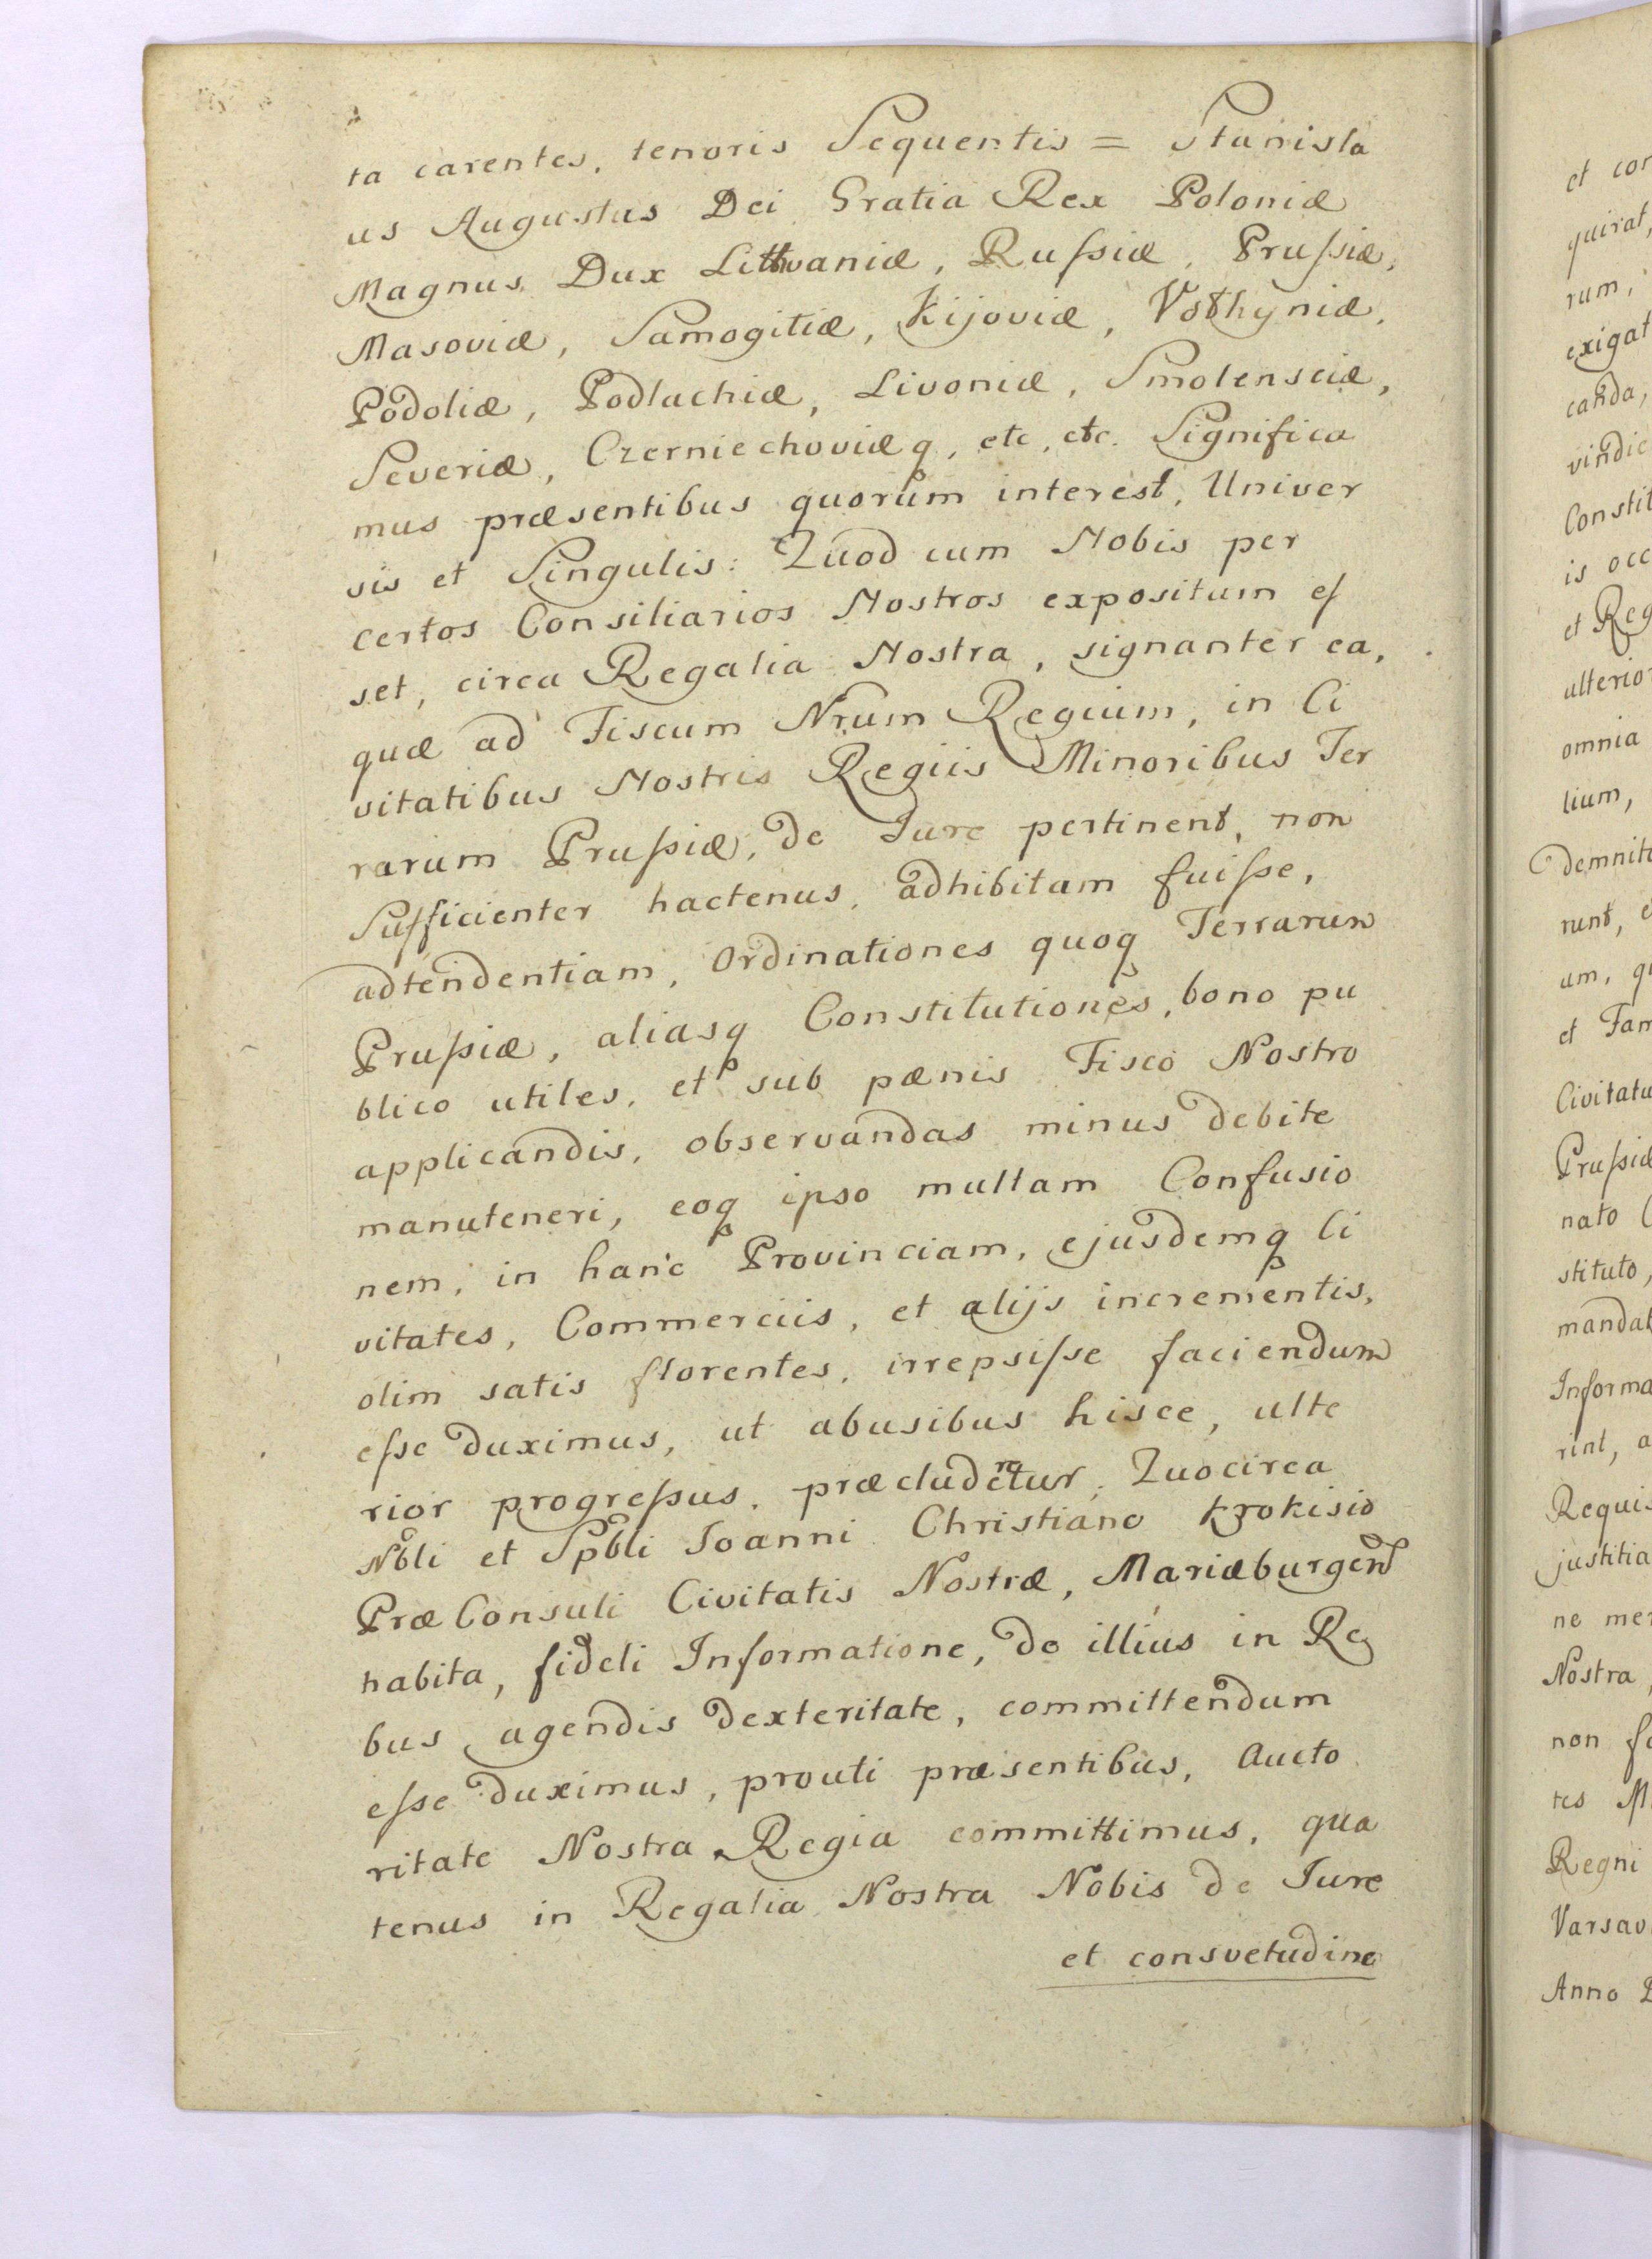 ta carentes, tenoris Sequentis = Stanisla
us Augustus Dei Gratia Rex Poloniæ
Magnus Dux Lithvaniæ, Rußiæ, Prußiæ,
Masoviæ, Samogitiæ, Kijoviæ, Volhyniæ,
Podoliæ, Podlachiæ, Livoniæ, Smolensciæ,
Severiæ, Czerniechoviæq, etc, etc. Significa
mus præsentibus quorum interest, Univer
sis et Singulis: Quod cum Nobis per
certos Consiliarios Nostros expositum es
set, circa Regalia Nostra, signanter ea,
quæ ad Fiscum Nrum Regium, in Ci
vitatibus Nostris Regiis Minoribus Ter
rarum Prußiæ, de Jure pertinent, non
Sufficienter hactenus, adhibitam fuiße,
adtendentiam, Ordinationes quoq Terrarum
Prußiæ, aliasq Constitutiones, bono pu
blico utiles, et sub pænis Fisco Nostro
applicandis, observandas minus debite
manuteneri, eoq ipso multam Confusio
nem, in hanc Provinciam, ejusdemq Ci
vitates, Commerciis, et alijs incrementis,
olim satis florentes, irrepsiße faciendum
eße duximus, ut abusibus hisce, ulte
rior progreßus, præcluderetur, Quocirca
Nbli et Spbli Joanni Christiano Krokisio
PræConsuli Civitatis Nostræ, Mariæburgens
habita, fideli Informatione, de illius in Re
bus agendis dexteritate, committendum
eße duximus, prouti præsentibus, Aucto
ritate Nostra Regia committimus, qua
tenus in Regalia Nostra Nobis de Jure
et consvetudine
et con
quirat,
rum,
exigat
canda,
vindic
Constit
is occ
et Reg
ulterior
omnia
lium,
demnita
runt, e
um, qu
et Fam
Civitatu
Prußiæ
nato C
stituto,
mandat
Informa
rint, a
Requis
justitia
ne mer
Nostra,
non fa
tes M
Regni
Varsav
Anno D